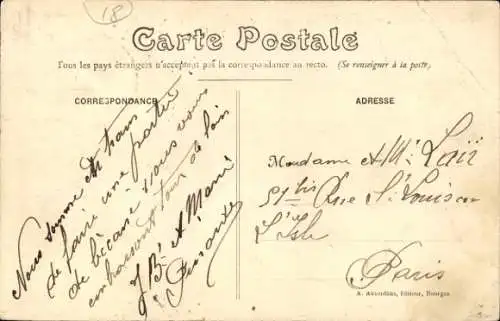 18
Carte Postale
Tous les pays étrangers n'acceptent pas la correspondance au recto. (Se renseigner à la poste)
CORRESPONDANCE
Nous somme en train
de faire une partie
de bécane & vous vous
embrassont tour de loin
J. B. et A. Marie
ADRESSE
Moudame A Mi Laïr
51 bis Rue St Louis en
L'Isle
Paris
A. Auxenfans, Editeur, Bourges